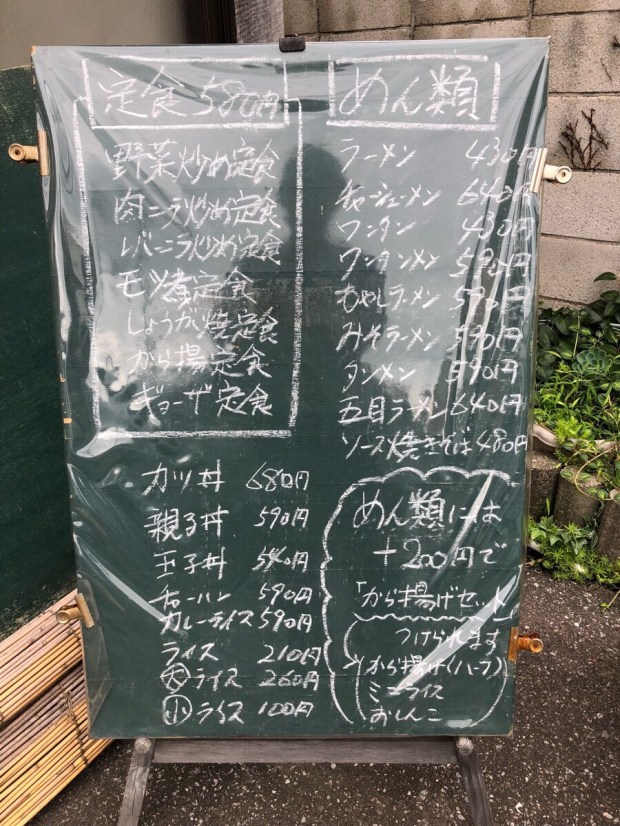 定食 580円
野菜炒め定食
肉ニラ炒め定食
レバニラ炒め定食
モツ煮定食
しょうが焼定食
から揚定食
ギョーザ定食
カツ丼 680円
親子丼 590円
玉子丼 540円
チャーハン 590円
カレーライス 590円
ライス 210円
大ライス 260円
小ライス 100円
めん類
ラーメン 430円
チャーシューメン 640円
ワンタン 430円
ワンタンメン 590円
もやしラーメン 590円
みそラーメン 590円
タンメン 590円
五目ラーメン 640円
ソース焼きそば 480円
めん類には
+200円で
「から揚げセット」
つけられます
から揚げ(ハーフ)
ミニライス
おしんこ